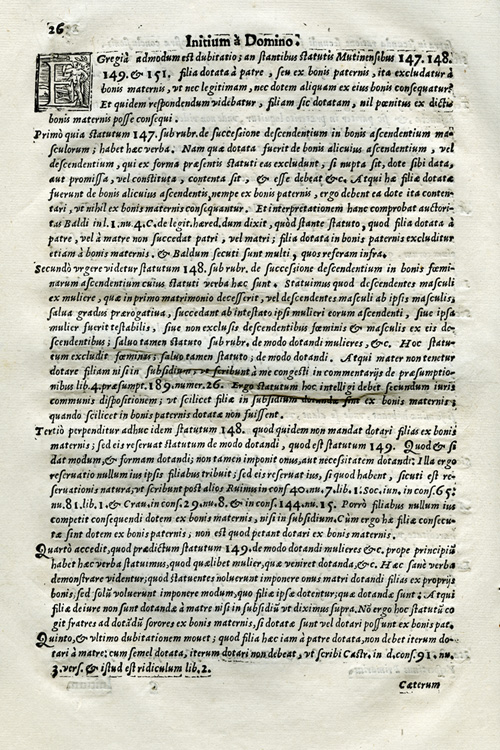 26
Initium à Domino.
EGregiè admodum est dubitatio; an stantibus statutis Mutinensibus 147. 148.
149. & 151. filia dotata à patre, seu ex bonis paternis, ita excludatur à
bonis maternis, ut nec legitimam, nec dotem aliquam ex eius bonis consequatur?
Et quidem respondendum videbatur, filiam sic dotatam, nil pœnitus ex dictis
bonis maternis posse consequi.
Primò quia statutum 147. sub rubr. de successione descendentium in bonis ascendentium ma-
sculorum; habet hæc verba. Nam quæ dotata fuerit de bonis alicuius ascendentium, vel
descendentium, qui ex forma præsentis statuti eas excludunt, si nupta sit, dote sibi data,
aut promissa, vel constituta, contenta sit, & esse debeat &c. Atqui hæ filiæ dotatæ
fuerunt de bonis alicuius ascendentis, nempe ex bonis paternis, ergo debent ea dote ita conten-
tari, ut nihil ex bonis maternis consequantur. Et interpretationem hanc comprobat auctori-
tas Baldi in l. 1. nu. 4. C. de legit. hæred. dum dixit, quòd stante statuto, quod filia dotata à
patre, vel à matre non succedat patri, vel matri; filia dotata in bonis paternis excluditur
etiam à bonis maternis. & Baldum secuti sunt multi, quos referam infra.
Secundò vrgere videtur statutum 148. sub rubr. de successione descendentium in bonis fœmi-
narum ascendentium cuius statuti verba hæc sunt. Statuimus quod descendentes masculi
ex muliere, quæ in primo matrimonio decesserit, vel descendentes masculi ab ipsis masculis,
salua gradus prærogatiua, succedant ab intestato ipsi mulieri eorum ascendenti, siue ipsa
mulier fuerit testabilis, siue non exclusis descendentibus fœminis & masculis ex eis de-
scendentibus; saluo tamen statuto sub rubr. de modo dotandi mulieres, &c. Hoc statu-
tum excludit fœminas; saluo tamen statuto; de modo dotandi. Atqui mater non tenetur
dotare filiam nisi in subsidium, ut scribunt à me congesti in commentarijs de præsumptio-
nibus lib. 4. præsumpt. 189. numer. 26. Ergo statutum hoc intelligi debet secundum iuris
communis dispositionem; ut scilicet filiæ in subsidium dotandæ sint ex bonis maternis;
quando scilicet in bonis paternis dotatæ non fuissent.
Tertiò perpenditur adhuc idem statutum 148. quod quidem non mandat dotari filias ex bonis
maternis; sed eis reseruat statutum de modo dotandi, quod est statutum 149. Quod & si
dat modum, & formam dotandi; non tamen imponit onus, aut necessitatem dotandi: Illa ergo
reseruatio nullum ius ipsis filiabus tribuit; sed eis reseruat ius, si quod habent, sicuti est re-
seruationis natura, ut scribunt post alios Ruinus in cons. 40. nu. 7. lib. 1. Soc. iun. in cons. 65.
nu. 81. lib. 1. & Crau. in cons. 29. nu. 8. & in cons. 144. nu. 15. Porrò filiabus nullum ius
competit consequendi dotem ex bonis maternis, nisi in subsidium. Cùm ergo hæ filiæ consecu-
tæ sint dotem ex bonis paternis, non est quod petant dotari ex bonis maternis.
Quartò accedit, quod prædictum statutum 149. de modo dotandi mulieres &c. prope principiũ
habet hæc verba statuimus, quod quælibet mulier, quæ veniret dotanda, &c. Hæc sanè verba
demonstrare videntur; quod statuentes noluerunt imponere onus matri dotandi filias ex proprijs
bonis, sed solũ voluerunt imponere modum, quo filiæ ipsæ dotentur; quæ dotandæ sunt: Atqui
filiæ de iure non sunt dotandæ à matre nisi in subsidiũ ut diximus supra. Nõ ergo hoc statutũ co-
git fratres ad dotãdũ sorores ex bonis maternis, si dotatæ sunt vel dotari possunt ex bonis pat.
Quinto, & vltimo dubitationem mouet; quod filia hæc iam à patre dotata, non debet iterum do-
tari à matre: cum semel dotata, iterum dotari non debeat, ut scribi Castr. in d. cons. 91. nu.
3. vers. & istud est ridiculum lib. 2.
Cæterum